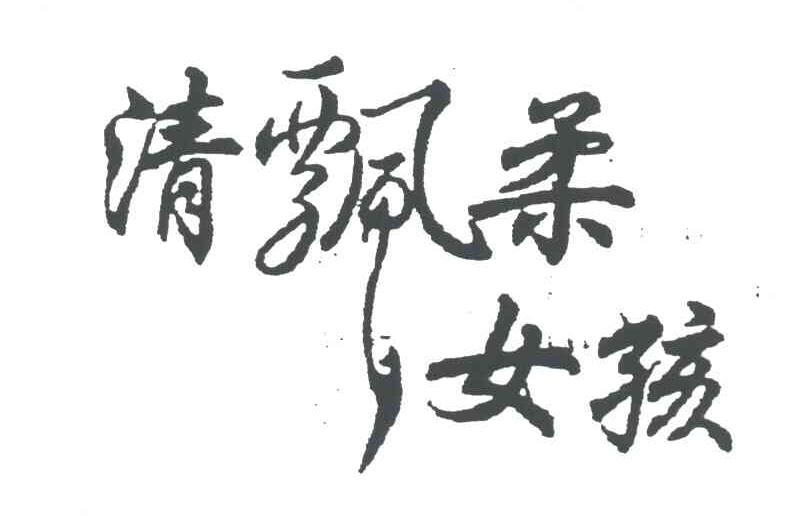 清飘柔
女孩